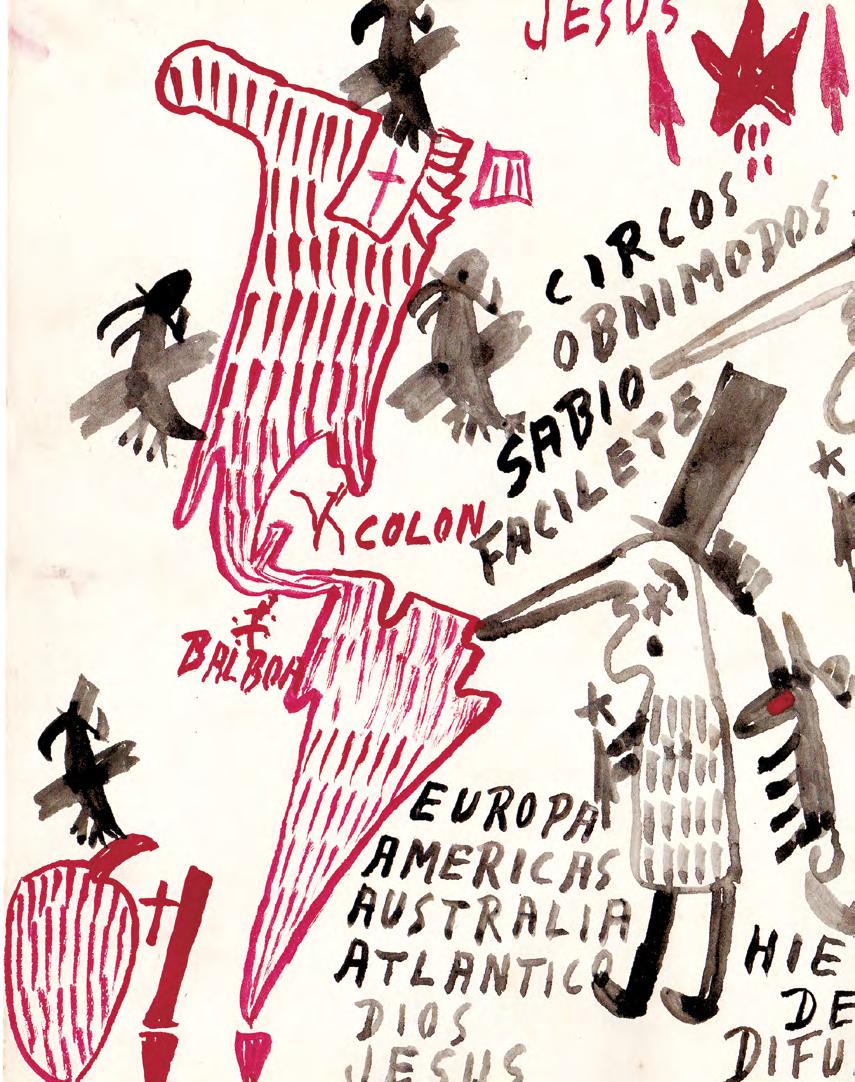 JESUS
CIRCOS
OBNIMODOS
SABIO
FACILETE
COLON
BALBOA
EUROPA
AMERICAS
AUSTRALIA
ATLANTICO
DIOS
JESUS
HIE
DE
DIFU